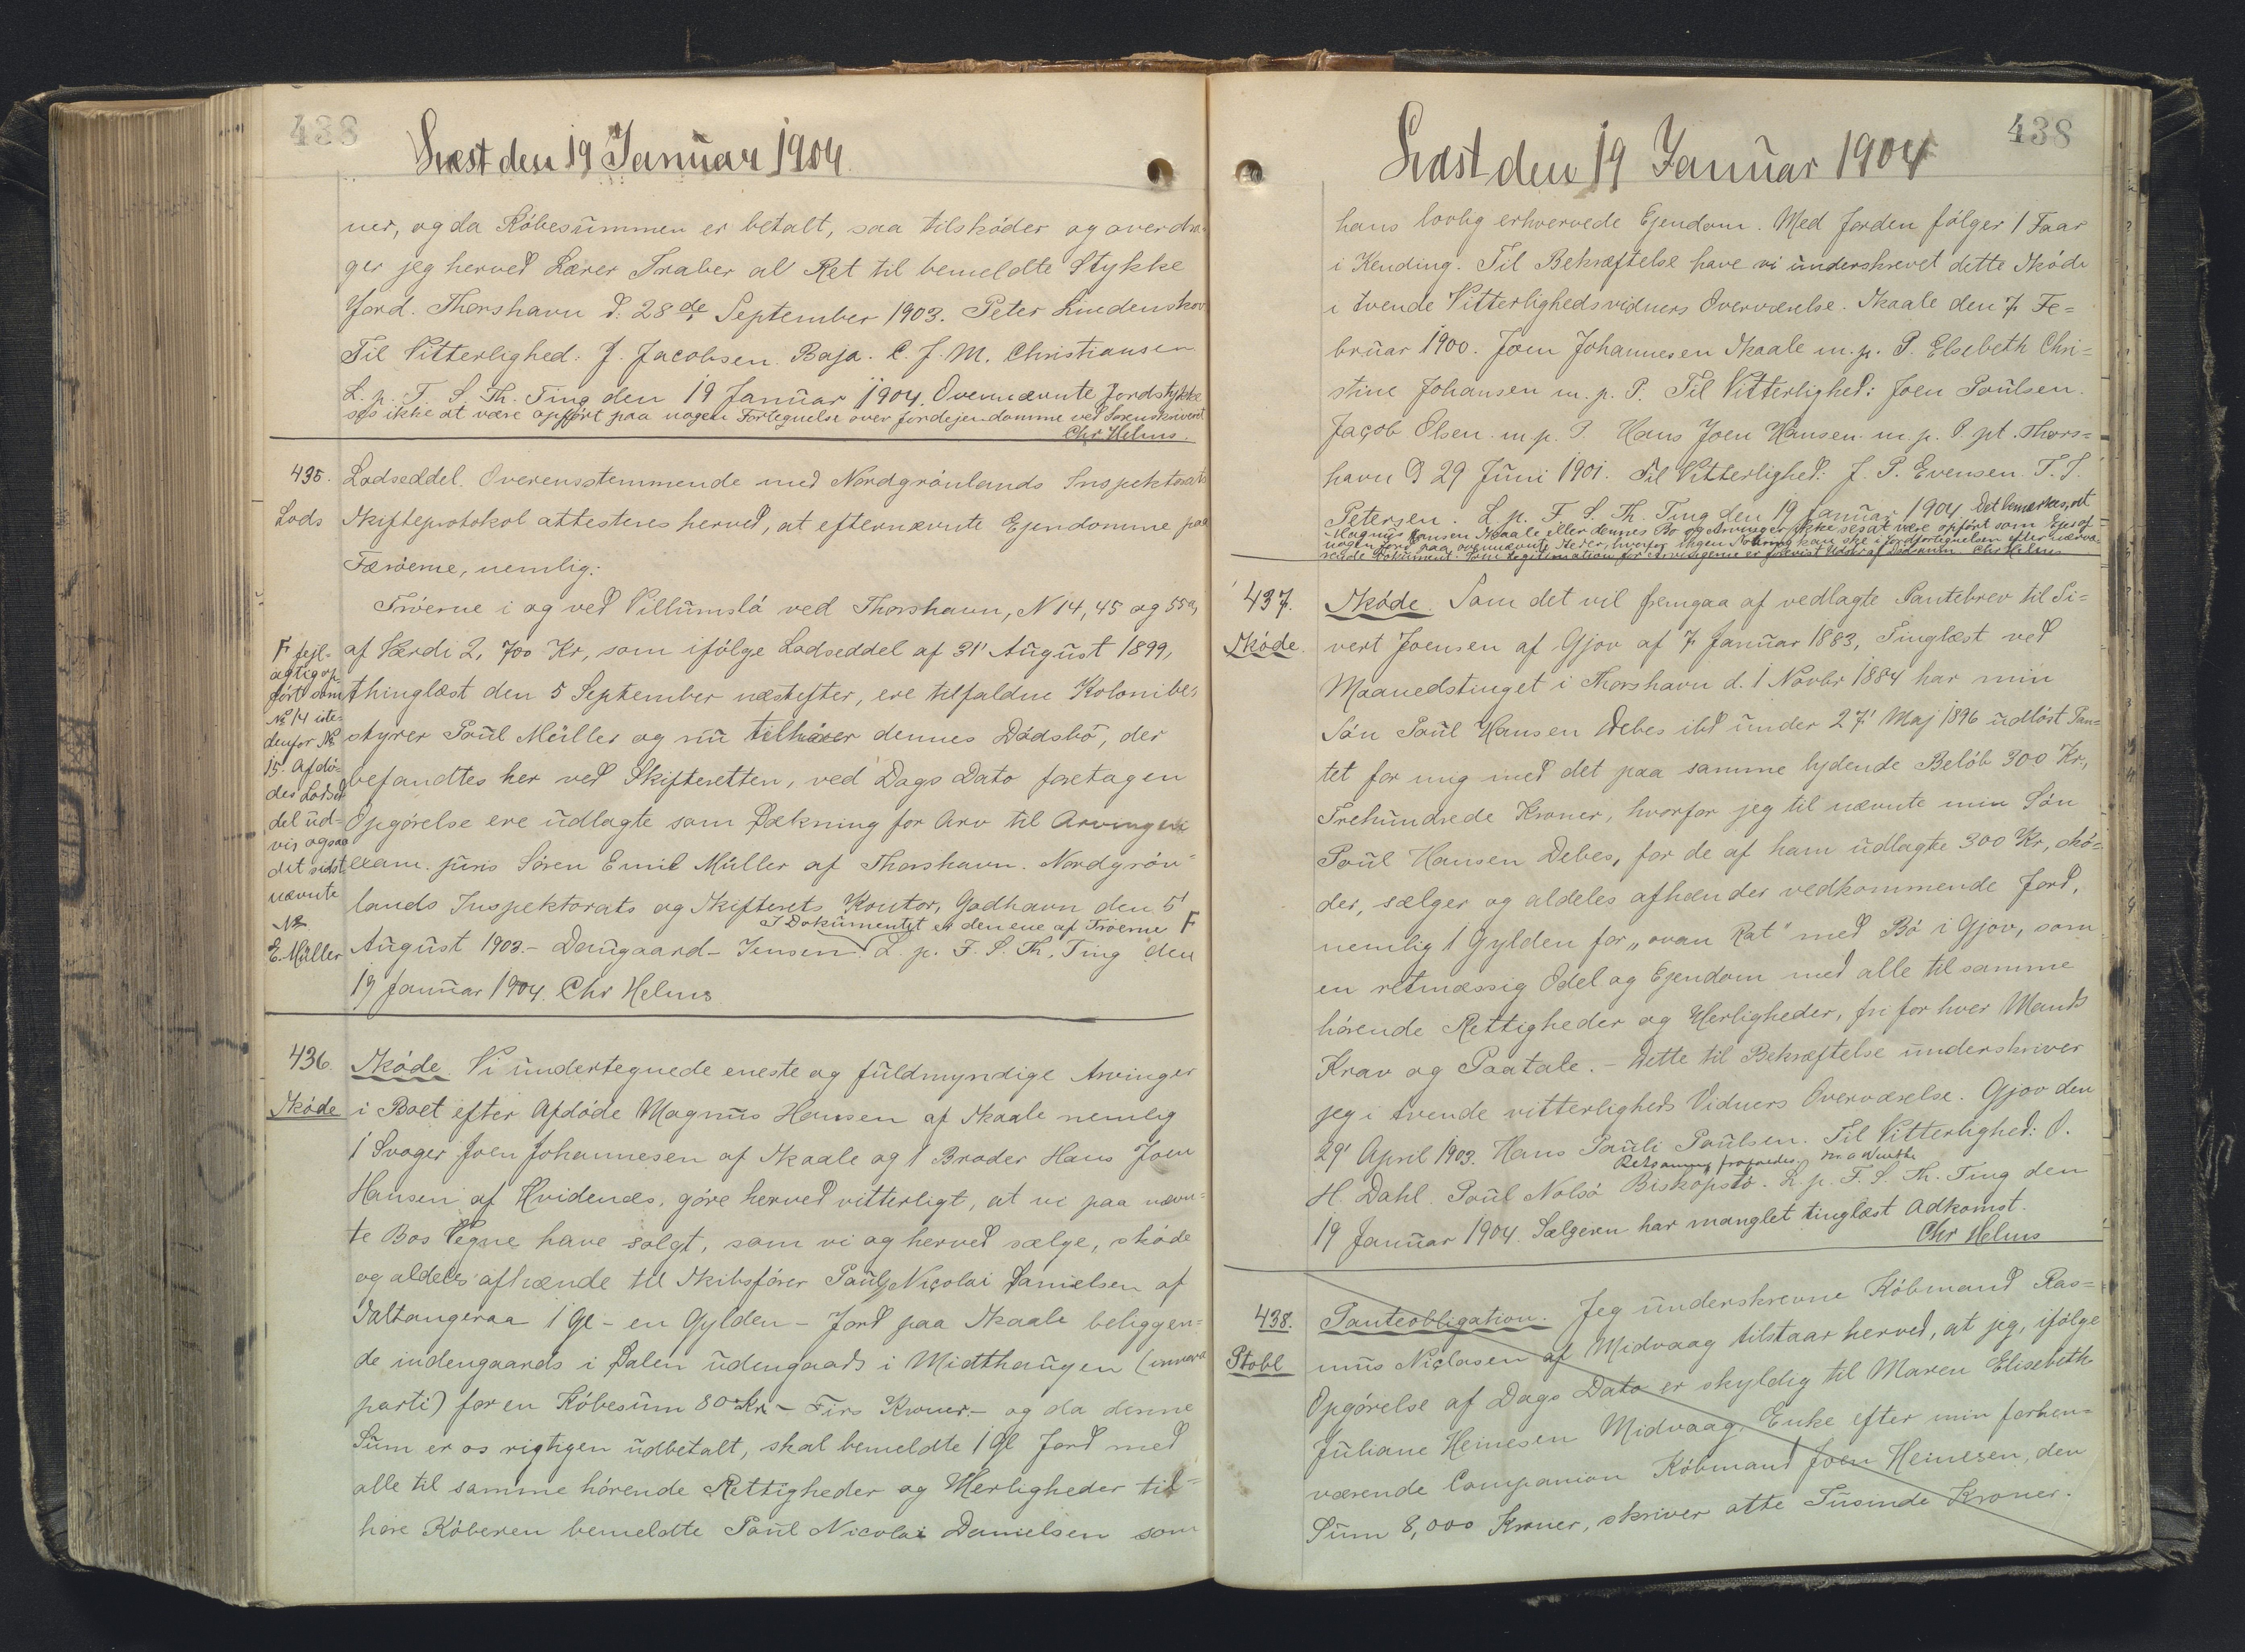 438
Læst den 19 Januar 1904.
ner, og da Köbesummen er betalt, saa tilsköder og overdra-
ger jeg herved Lærer Traber al Ret til bemeldte Stykke
Jord. Thorshavn d. 28de September 1903. Peter Lindenskov
Til Vitterlighed: J. Jacobsen. Baja. C. J. M. Christiansen
L. p. F. S. Th. Ting den 19 Januar 1904. Ovennævnte Jordstykke
ses ikke at være opført paa nogen Fortegnelse over Jordejendomme ved Sorenskriveriet
Chr. Helms.
435.
Lods
Lodseddel. Overensstemmende med Nordgrönlands Inspektorats
Skifteprotokol attesteres herved, at efternævnte Ejendomme paa
Færöerne, nemlig:
Tröerne i og ved Villumslá ved Thorshavn, N 14, 45 og 55a,
af Værdi 2,700 Kr, som ifölge Lodseddel af 31' August 1899,
thinglæst den 5 September næstefter, ere tilfaldne Kolonibe-
styrer Poul Müller og nu tilhörer dennes Dödsbo, der
befandtes her ved Skifteretten, ved Dags Dato foretagen
Opgörelse ere udlagte som Dækning for Arv til Arvingen
exam. juris Sören Emil Müller af Thorshavn. Nordgrön-
lands Inspektorats og Skifterets Kontor, Godhavn den 5'
I Dokumentet er den ene af Tröerne F
August 1903.- Daugaard-Jensen. L. p. F. S. Th. Ting den
19 Januar 1904. Chr Helms.
F fejl-
agtig op-
fört som
No 14 iste-
denfor No
15. Afdö-
des Lodsed
del ud-
vis ogsaa
det sidst
nævnte
No
E. Müller
436.
Sköde
Sköde. Vi undertegnede eneste og fuldmyndige Arvinger
i Boet efter Afdöde Magnus Hansen af Skaale nemlig
1 Svoger Joen Johannesen af Skaale og 1 Broder Hans Joen
Hansen af Hvidenæs, göre herved vitterligt, at vi paa nævn-
te Bos Vegne have solgt, som vi og herved sælge, sköde
og aldeles afhænde til Skibsförer Poul Nicolai Danielsen af
Saltangeraa 1 Gl - en Gylden - Jord paa Skaale beliggen-
de indengaards i Dalen udengaards i Midthaugen (innara
parti) for en Köbesum 80 Kr - Firs Kroner - og da denne
Sum er os rigtigen udbetalt, skal bemeldte 1 Gl Jord med
alle til samme hörende Rettigheder og Herligheder til-
höre Köberen bemeldte Poul Nicolai Danielsen som
438
Læst den 19 Januar 1904
hans lovlig erhvervede Ejendom. Med Jorden fölger 1 Faar
i Kending. Til Bekræftelse have vi underskrevet dette Sköde
i tvende Vitterlighedsvidners Overværelse. Skaale den 7 Fe=
bruar 1900. Joen Johannesen Skaale m. p. P. Elsebeth Chri=
stine Johansen m. p. P. Til Vitterlighed: Joen Poulsen.
Jacob Olsen m. p. P. Hans Joen Hansen m. p. P. pt. Thors=
havn d 29 Juni 1901. Til Vitterlighed: J. P. Evensen T. J.
Petersen. L. p. F. S. Th. Ting den 19 Januar 1904. Det bemærkes, at
Magnus Hansen Skaale eller dennes Bo og Arvinger ikke ses at være opfört som Ejer af
nogen Jord paa ovennævnte Steder, hvorfor ingen Notering kan ske i Jordfortegnelsen efter nærvæ-
rende Dokument. Som Legitimation for Arvingerne er forevist Udskr af Chr Helms
437.
Sköde.
Sköde. Som det vil fremgaa af vedlagte Pantebrev til Si=
vert Joensen af Gjov af 7 Januar 1883, Tinglæst ved
Maanedstinget i Thorshavn d. 1 Novbr 1884 har min
Sön Poul Hansen Debes ibd under 27' Maj 1896 udlöst Pan=
tet for mig med det paa samme lydende Belöb 300 Kr,
Trehundrede Kroner, hvorfor jeg til nævnte min Sön
Poul Hansen Debes, for de af ham udlagte 300 Kr, skö=
der, sælger og aldeles afhænder vedkommende Jord,
nemlig 1 Gylden for „ovan Rat" med Bö i Gjov, som
en retmæssig Odel og Ejendom med alle til samme
hörende Rettigheder og Herligheder, fri for hver Mands
Krav og Paatale. - Dette til Bekræftelse underskriver
jeg i tvende vitterligheds Vidners Overværelse. Gjov den
29' April 1903. Hans Pauli Poulsen. Til Vitterlighed: O.
H. Dahl. Poul Nolsö Biskopstö. L. p. F. S. Th. Ting den
19 Januar 1904. Sælgeren har manglet tinglæst Adkomst.
Chr Helms
438.
Ptobl
Panteobligation. Jeg underskrevne Köbmand Ras=
mus Niclasen af Midvaag tilstaar herved, at jeg, ifölge
Opgörelse af Dags Dato er skyldig til Maren Elisebeth
Juliane Heinesen Midvaag, Enke efter min forhen=
værende Companion Köbmand Joen Heinesen, den
Sum 8,000 Kroner, skriver otte Tusinde Kroner.